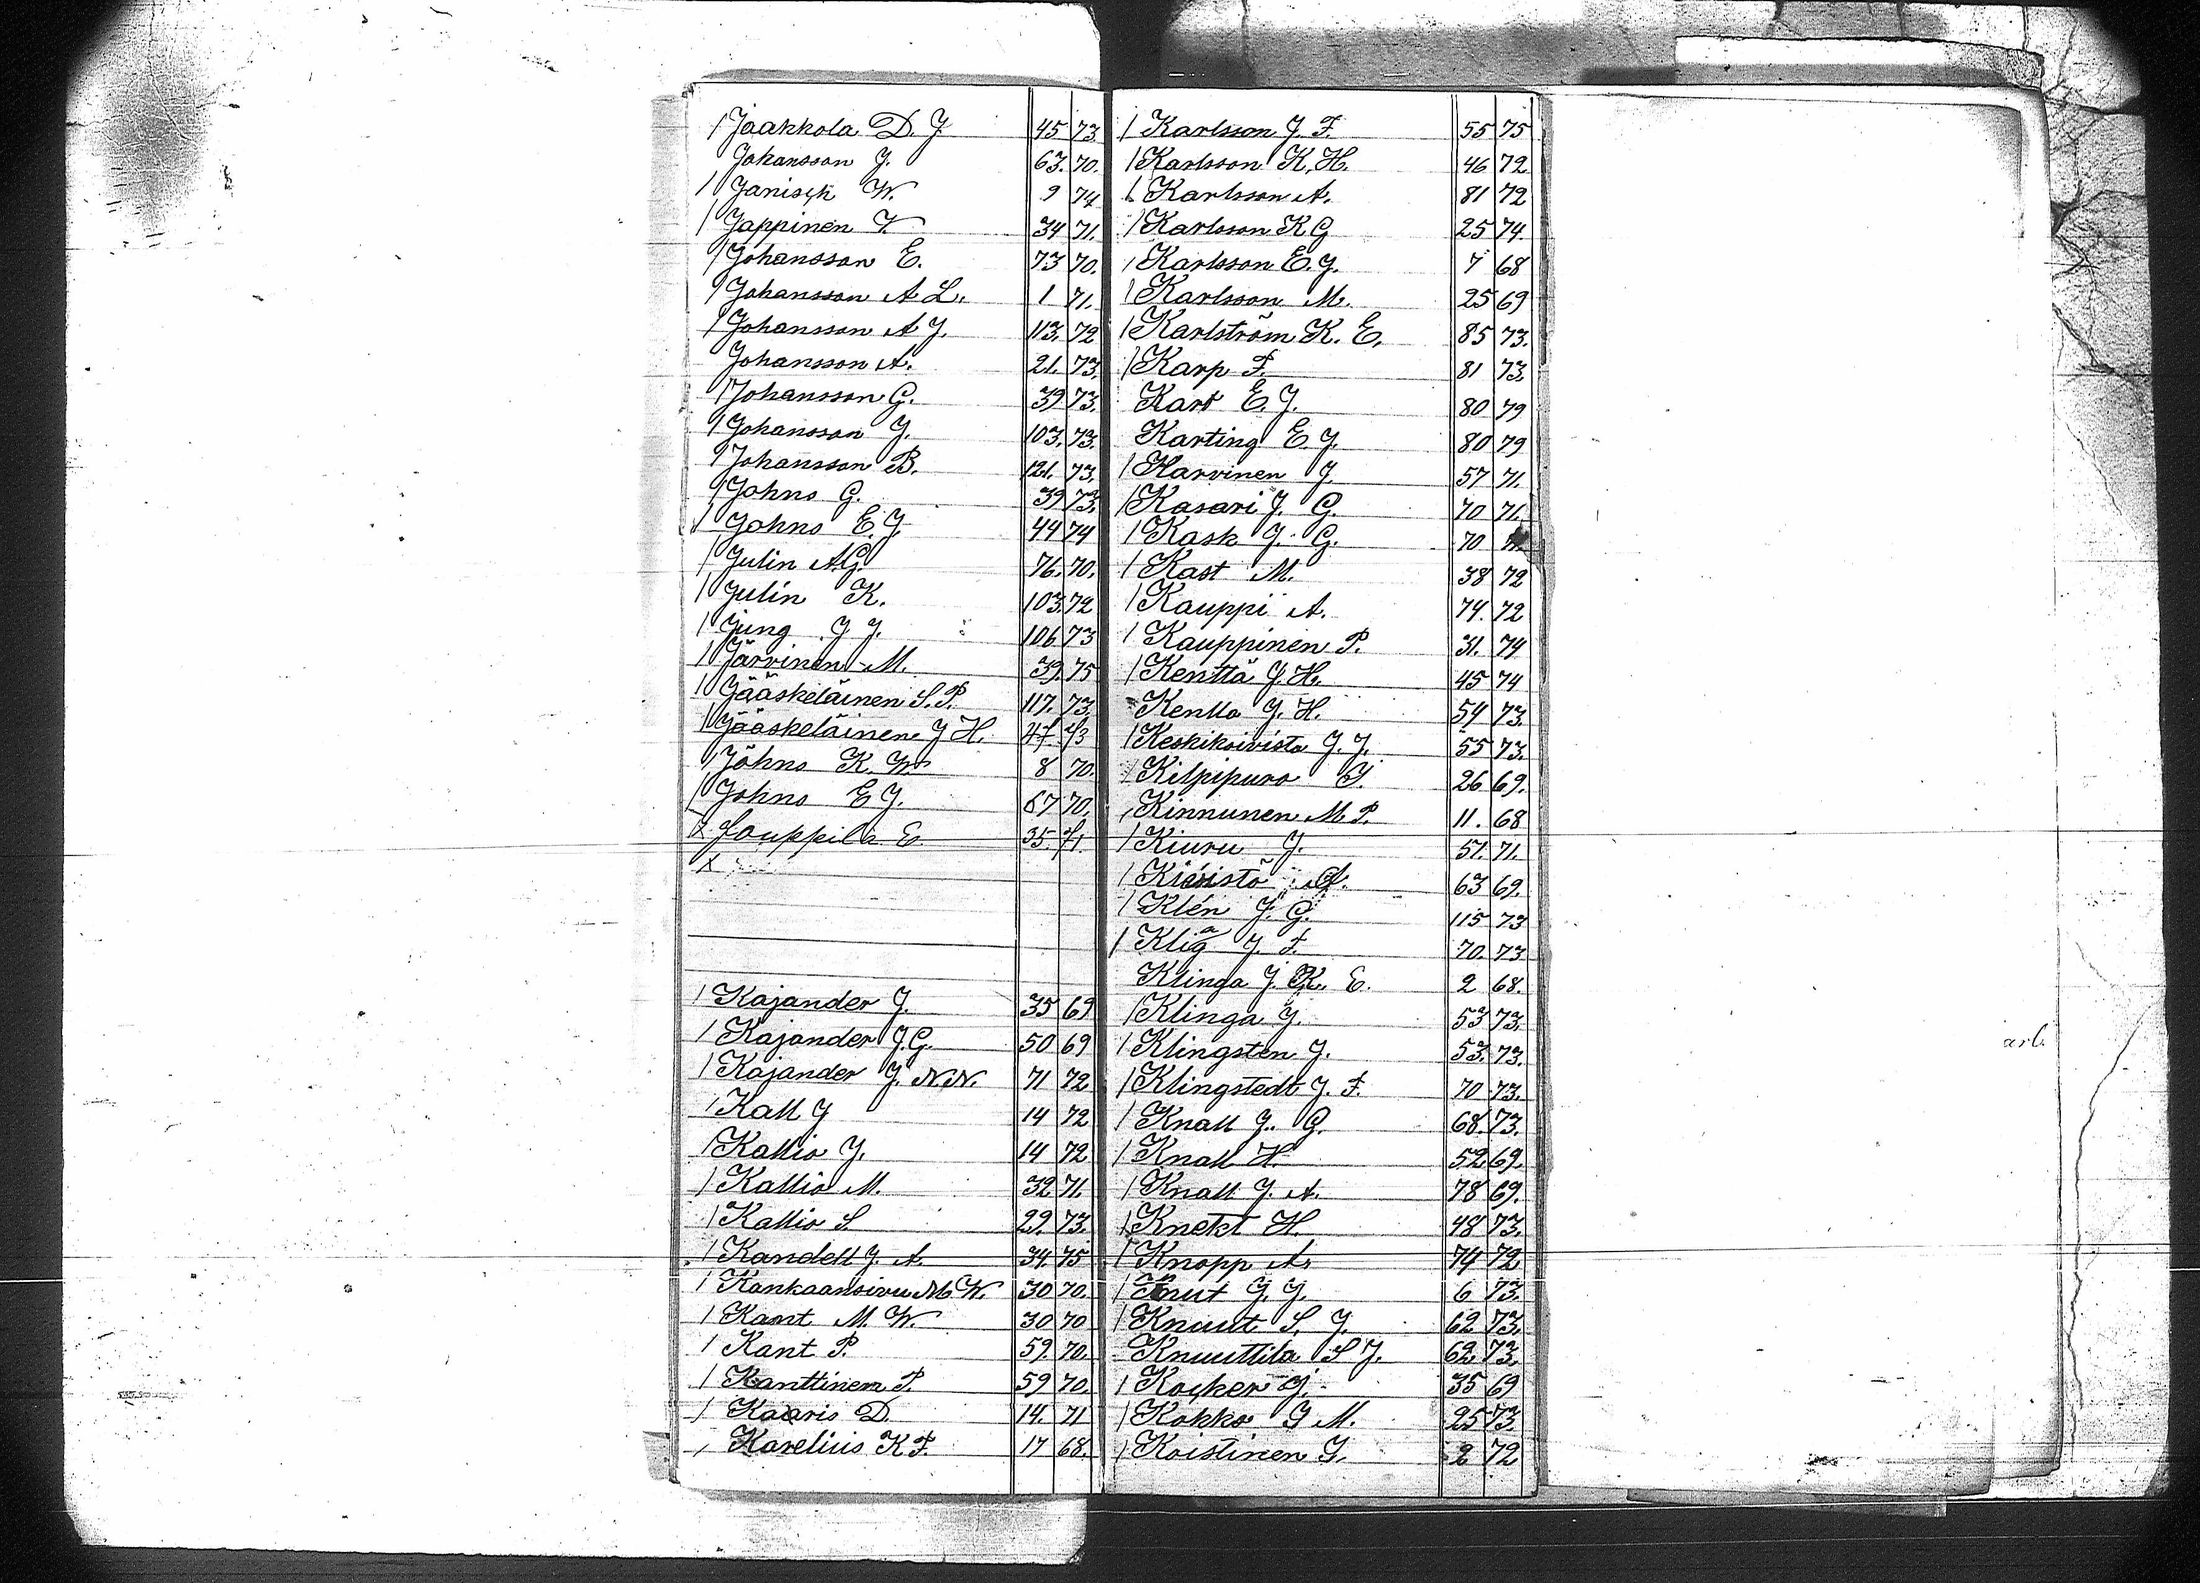 / Jaakkola D. J. 45 73.
Johansson J. 63. 70.
/ Janisch W. 9 74
/ Jappinen V. 34 71.
/ Johansson E. 73 70.
/ Johansson A L. 1 71.
/ Johansson A J. 113. 72
Johansson A. 21. 73.
/ Johansson G. 39 73.
/ Johansson J. 103. 73.
/ Johansson B. 121. 73.
/ Johns G. 39 73.
/ Johns E. J. 44 74
/ Julin A. G. 76. 70.
/ Julin K. 103. 72
/ Jung J J. 106 73
/ Järvinen M. 39. 75
/ Jääskeläinen S. P. 117. 73.
/ Jääskeläinen J H. 47. 73
/ Jöhns K. W. 8 70.
/ Johns E J. 67 70.
x Jauppila E. 35. 71.
x
/ Kajander J. 35 69
/ Kajander J. G. 50 69
/ Kajander J. N. N. 71 72
/ Kall J 14 72
/ Kallio J. 14 72
/ Kallio M. 32. 71.
/ Kallio S. 29. 73.
/ Kandell J. A. 34. 75
/ Kankaansivu M W. 30 70.
/ Kant M. W. 30 70
/ Kant P. 59. 70.
/ Kanttinen P. 59 70.
/ Kaaris D. 14. 71
/ Karelius K F. 17 68.
/ Karlsson J. F. 55 75
/ Karlsson K. H. 46 72
/ Karlsson A. 81 72
/ Karlsson K G 25 74.
/ Karlsson E. J. 7 68
/ Karlsson M. 25 69
/ Karlström K. E. 85 73.
/ Karp F. 81 73.
Kart E. J. 80 79
Karting E J. 80 79
/ Karvinen J 57 71.
/ Kasari J. G. 70 71.
/ Kask J. G. 70
/ Kast M. 38 72
/ Kauppi A. 74. 72
/ Kauppinen P. 31. 74
/ Kenttä J. H. 45 74
Kentta J. H. 54 73.
/ Keskikoivisto J. J. 55 73.
/ Kilpipuro J. 26 69.
/ Kinnunen M P. 11. 68
/ Kiuru J. 51. 71.
/ Kivistö A. 63 69.
/ Klén J. G. 115 73
/ Kliga J. F. 70. 73
Klinga J. K. E. 2 68.
/ Klinga J. 53 73.
/ Klingsten J. 53. 73.
/ Klingstedt J. F. 70 73.
/ Knall J. G. 68. 73.
/ Knall H. 52 69.
/ Knall J. A. 78 69.
/ Knekt H. 48 73.
/ Knopp A. 74 72
/ Knut J. J. 6 73.
/ Knuut S. J. 62 73.
Knuuttila S J. 62. 73.
/ Kocker J. 35 69
/ Kokko J M. 25 73.
/ Koistinen J. 2 72